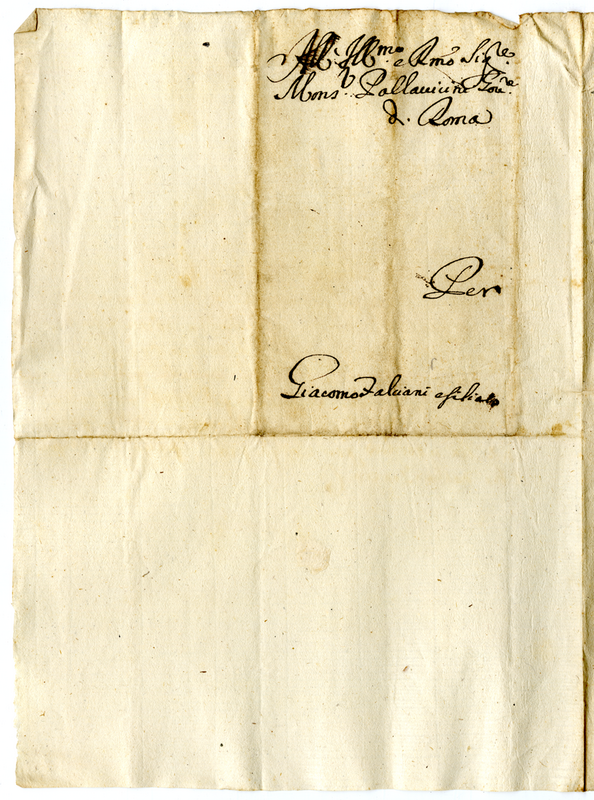 All Ill.mo e Rmo Sig.re
Mons.r Pallavicini Gou.re
di Roma
Per
Giacomo Falciani e figliolo